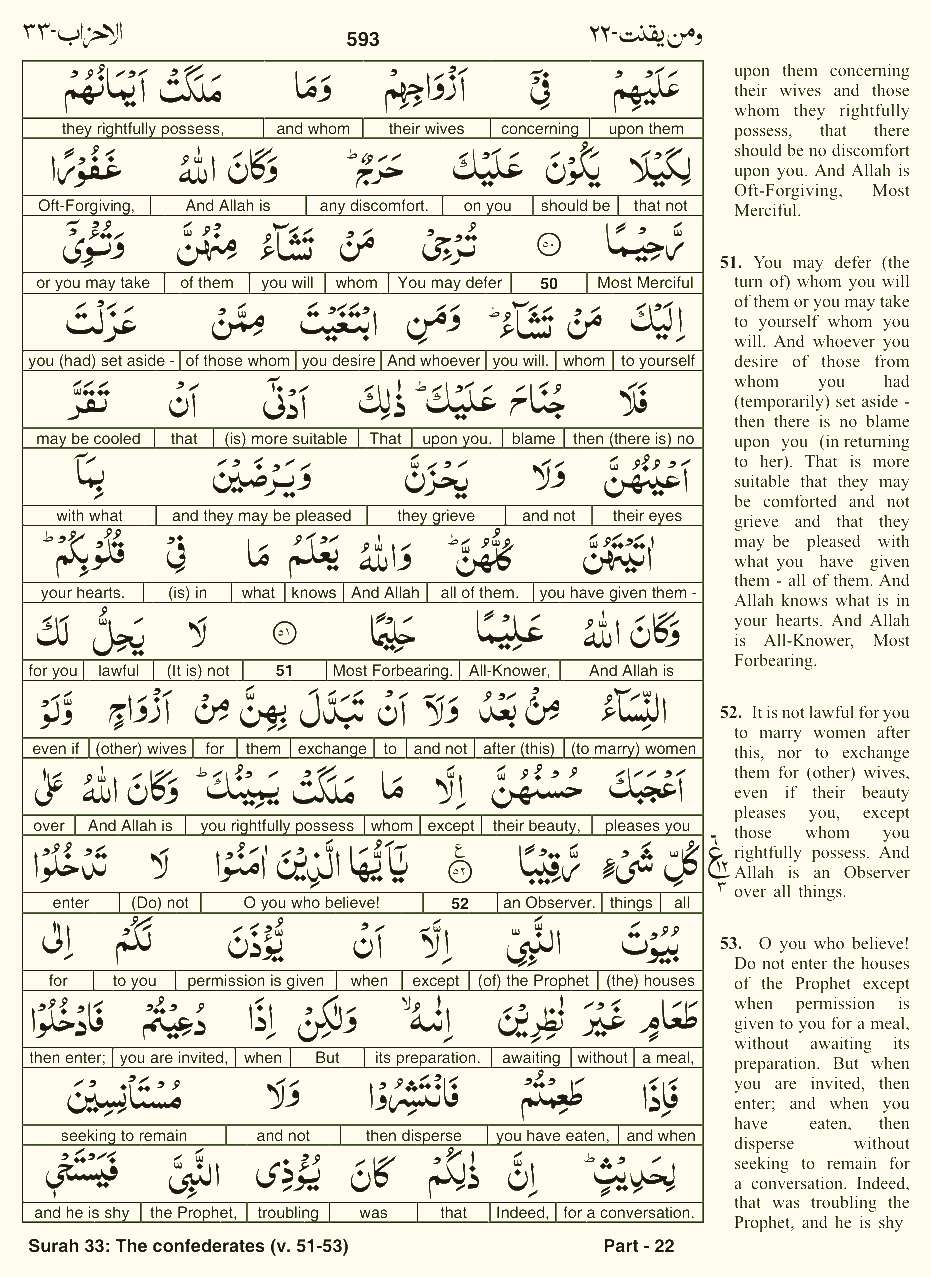 الاحزاب-٣٣
593
ومن يقنت-٢٢
عَلَيۡهِمۡ فِىۡۤ اَزۡوَاجِهِمۡ وَمَا مَلَـكَتۡ اَيۡمَانُهُمۡ
upon them | concerning | their wives | and whom | they rightfully possess,
لِكَيۡلَا يَكُوۡنَ عَلَيۡكَ حَرَجٌ ؕ وَكَانَ اللّٰهُ غَفُوۡرًا
that not | should be | on you | any discomfort. | And Allah is | Oft-Forgiving,
رَّحِيۡمًا ٥٠ تُرۡجِىۡ مَنۡ تَشَآءُ مِنۡهُنَّ وَتُـــْٔوِىۡۤ
Most Merciful | 50 | You may defer | whom | you will | of them | or you may take
اِلَيۡكَ مَنۡ تَشَآءُ ؕ وَمَنِ ابۡتَغَيۡتَ مِمَّنۡ عَزَلۡتَ
to yourself | whom | you will. | And whoever | you desire | of those whom | you (had) set aside -
فَلَا جُنَاحَ عَلَيۡكَ ؕ ذٰ لِكَ اَدۡنٰٓى اَنۡ تَقَرَّ
then (there is) no | blame | upon you. | That | (is) more suitable | that | may be cooled
اَعۡيُنُهُنَّ وَلَا يَحۡزَنَّ وَيَرۡضَيۡنَ بِمَاۤ
their eyes | and not | they grieve | and they may be pleased | with what
اٰتَيۡتَهُنَّ كُلُّهُنَّ ؕ وَاللّٰهُ يَعۡلَمُ مَا فِىۡ قُلُوۡبِكُمۡ ؕ
you have given them - | all of them. | And Allah | knows | what | (is) in | your hearts.
وَكَانَ اللّٰهُ عَلِيۡمًا حَلِيۡمًا ٥١ لَا يَحِلُّ لَـكَ
And Allah is | All-Knower, | Most Forbearing. | 51 | (It is) not | lawful | for you
النِّسَآءُ مِنۡۢ بَعۡدُ وَلَاۤ اَنۡ تَبَدَّلَ بِهِنَّ مِنۡ اَزۡوَاجٍ وَّلَوۡ
(to marry) women | after (this) | and not | to | exchange | them | for | (other) wives | even if
اَعۡجَبَكَ حُسۡنُهُنَّ اِلَّا مَا مَلَـكَتۡ يَمِيۡنُكَ ؕ وَكَانَ اللّٰهُ عَلٰى
pleases you | their beauty, | except | whom | you rightfully possess | And Allah is | over
كُلِّ شَىۡءٍ رَّقِيۡبًا ٥٢ يٰۤاَيُّهَا الَّذِيۡنَ اٰمَنُوۡا لَا تَدۡخُلُوۡا
all | things | an Observer. | 52 | O you who believe! | (Do) not | enter
بُيُوۡتَ النَّبِىِّ اِلَّاۤ اَنۡ يُّؤۡذَنَ لَـكُمۡ اِلٰى
(the) houses | (of) the Prophet | except | when | permission is given | to you | for
طَعَامٍ غَيۡرَ نٰظِرِيۡنَ اِنٰٮهُ ۙ وَلٰـكِنۡ اِذَا دُعِيۡتُمۡ فَادۡخُلُوۡا
a meal, | without | awaiting | its preparation. | But | when | you are invited, | then enter;
فَاِذَا طَعِمۡتُمۡ فَانْتَشِرُوۡا وَلَا مُسۡتَاۡنِسِيۡنَ
and when | you have eaten, | then disperse | and not | seeking to remain
لِحَـدِيۡثٍ ؕ اِنَّ ذٰ لِكُمۡ كَانَ يُؤۡذِى النَّبِىَّ فَيَسۡتَحۡىٖ
for a conversation. | Indeed, | that | was | troubling | the Prophet, | and he is shy
upon them concerning
their wives and those
whom they rightfully
possess, that there
should be no discomfort
upon you. And Allah is
Oft-Forgiving, Most
Merciful.
51. You may defer (the
turn of) whom you will
of them or you may take
to yourself whom you
will. And whoever you
desire of those from
whom you had
(temporarily) set aside -
then there is no blame
upon you (in returning
to her). That is more
suitable that they may
be comforted and not
grieve and that they
may be pleased with
what you have given
them - all of them. And
Allah knows what is in
your hearts. And Allah
is All-Knower, Most
Forbearing.
52. It is not lawful for you
to marry women after
this, nor to exchange
them for (other) wives,
even if their beauty
pleases you, except
those whom you
rightfully possess. And
Allah is an Observer
over all things.
53. O you who believe!
Do not enter the houses
of the Prophet except
when permission is
given to you for a meal,
without awaiting its
preparation. But when
you are invited, then
enter; and when you
have eaten, then
disperse without
seeking to remain for
a conversation. Indeed,
that was troubling the
Prophet, and he is shy
Surah 33: The confederates (v. 51-53)
Part - 22